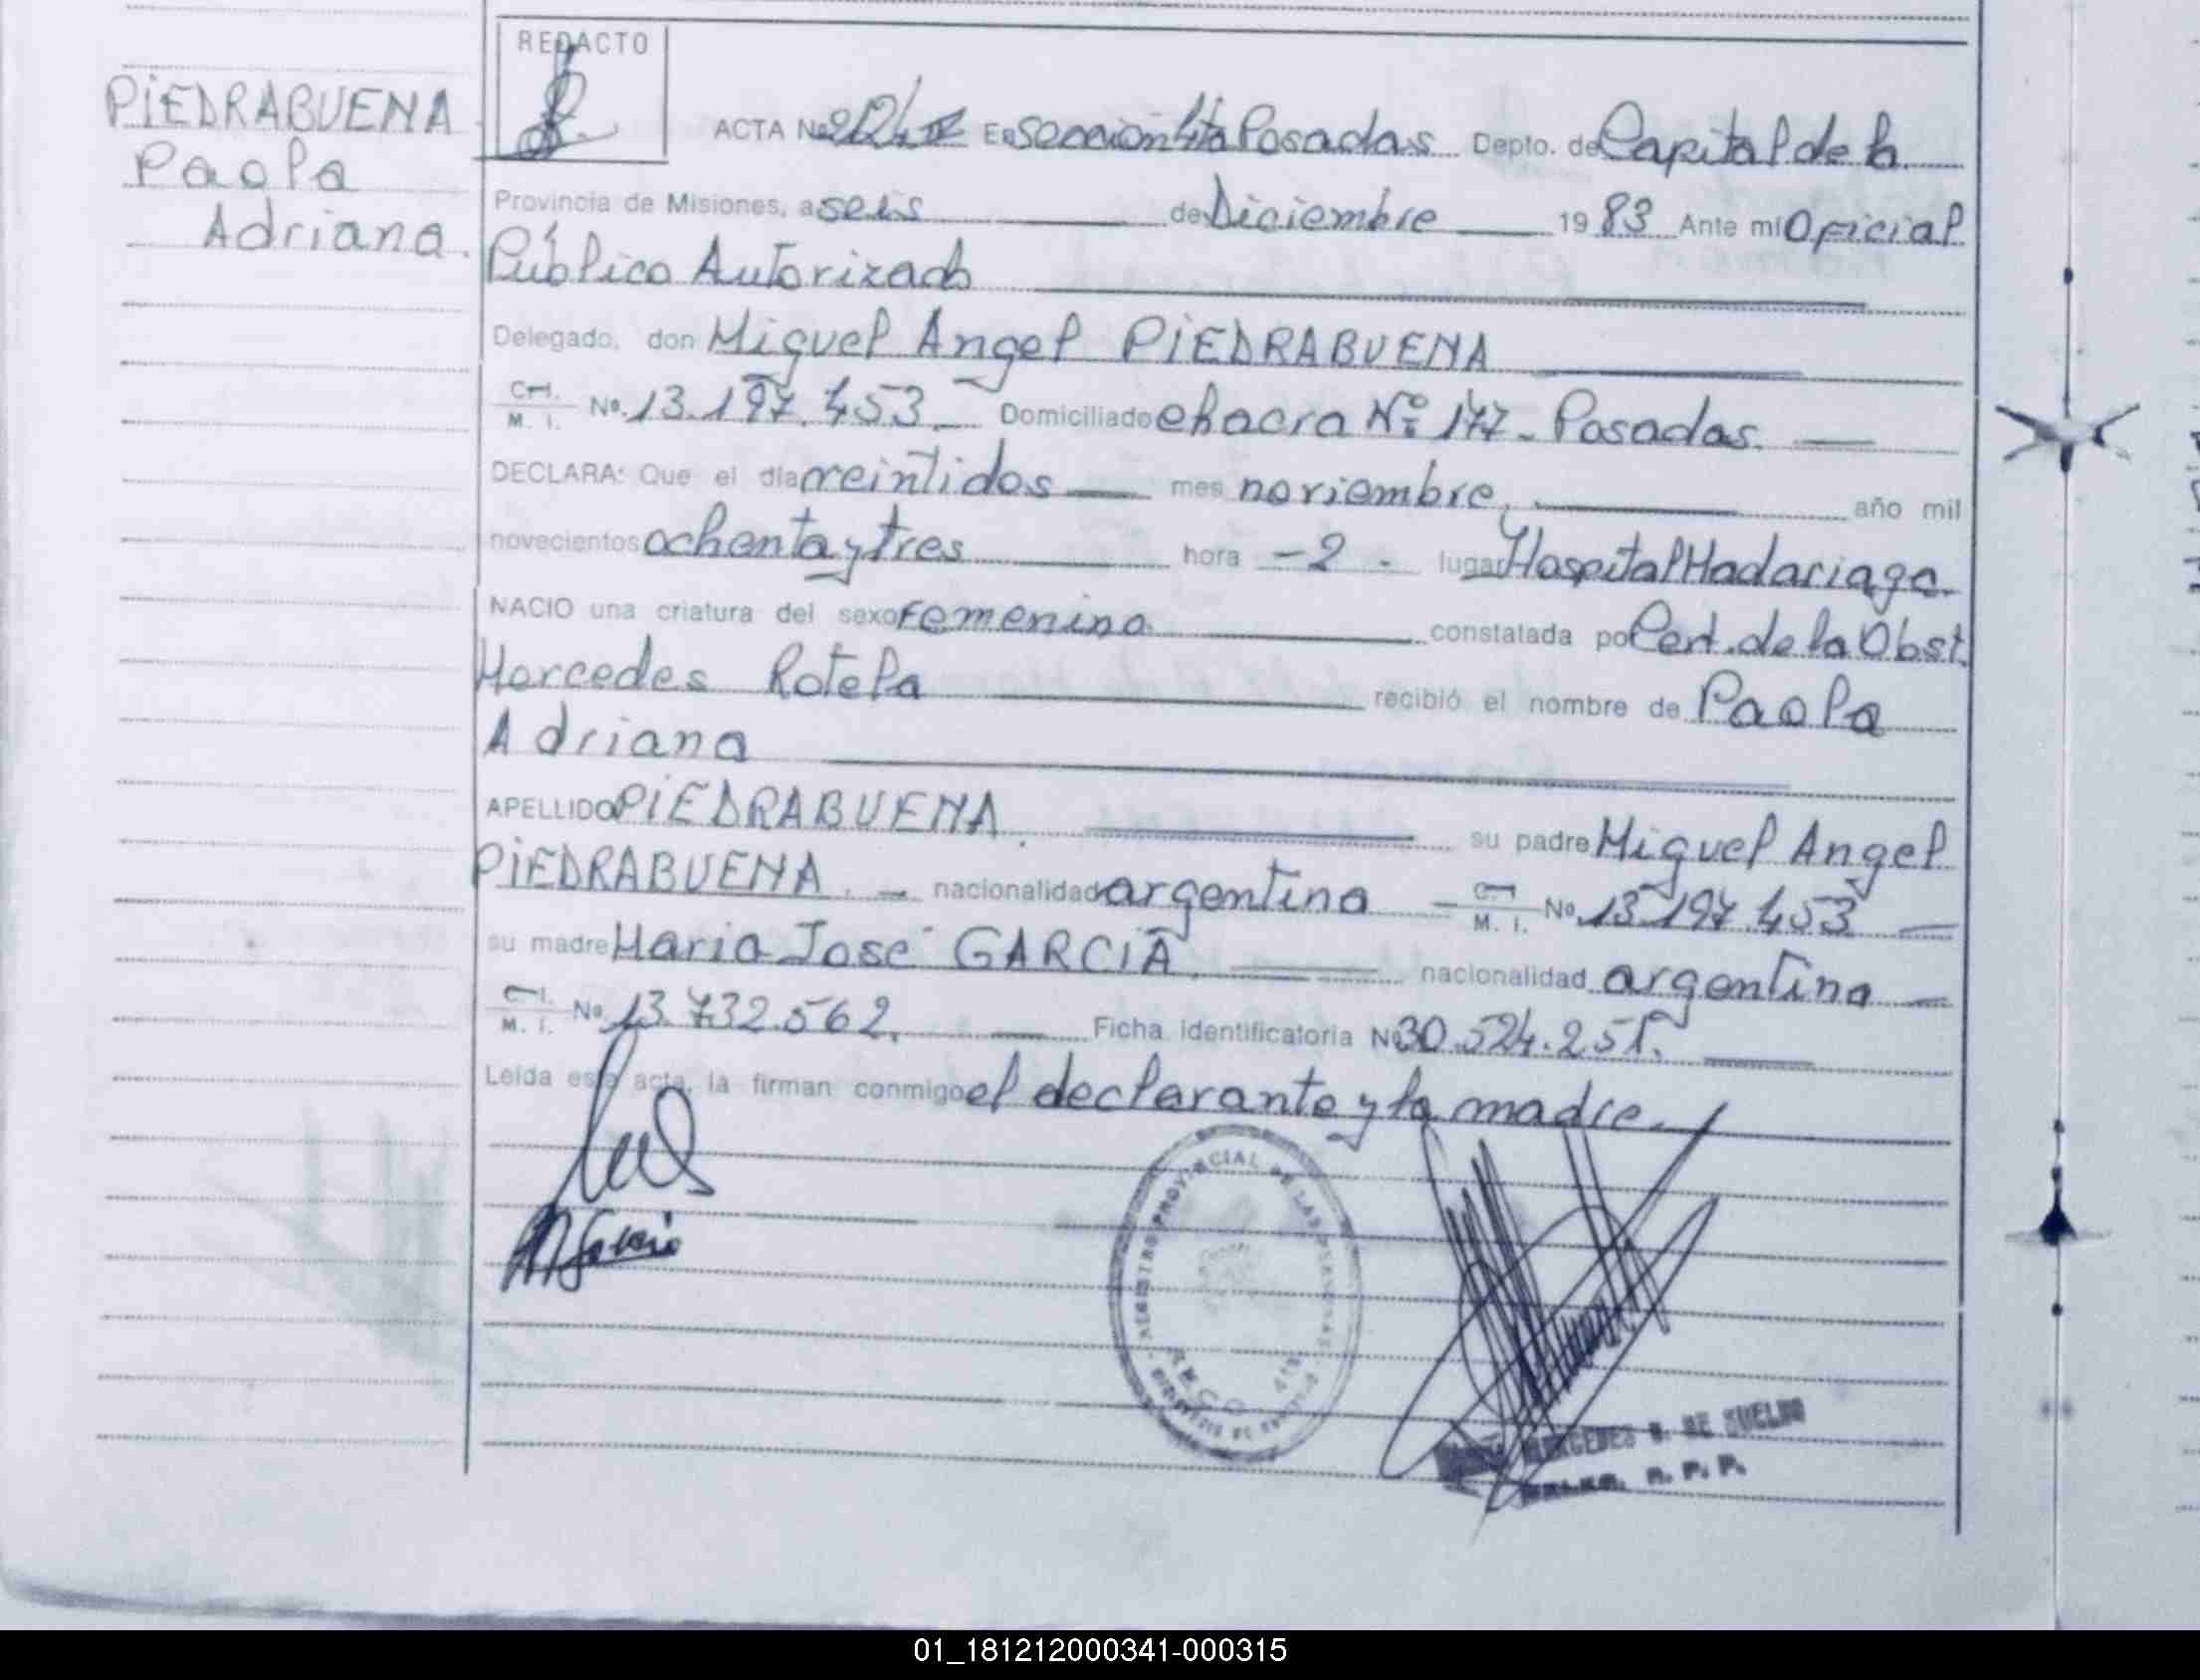 REDACTO
PIEDRABUENA
Paola
Adriana.
ACTA Nº En sección 4ta Posadas Depto. de Capital de la
Provincia de Misiones, a seis de Diciembre 1983 Ante mí Oficial
Público Autorizado
Delegado, don Miguel Angel PIEDRABUENA
C. I. M. I. Nº. 13.197.453 Domiciliado chacra Nº 177 - Posadas.
DECLARA: Que el día veintidos mes noviembre, año mil
novecientos ochenta y tres hora -2- lugar Hospital Madariaga.
NACIO una criatura del sexo femenino constatada por Cert. de la Obst.
Mercedes Rotela recibió el nombre de Paola
Adriana
APELLIDO PIEDRABUENA. su padre Miguel Angel
PIEDRABUENA. - nacionalidad argentina C. I. M. I. Nº. 13.197.453
su madre Maria José GARCIA, nacionalidad argentina
C. I. M. I. Nº. 13.732.562. Ficha identificatoria Nº 30.524.251.
Leída esta acta, la firman conmigo el declarante y la madre.
REGISTRO PROVINCIAL DE LAS PERSONAS
MERCEDES DE
01_181212000341-000315